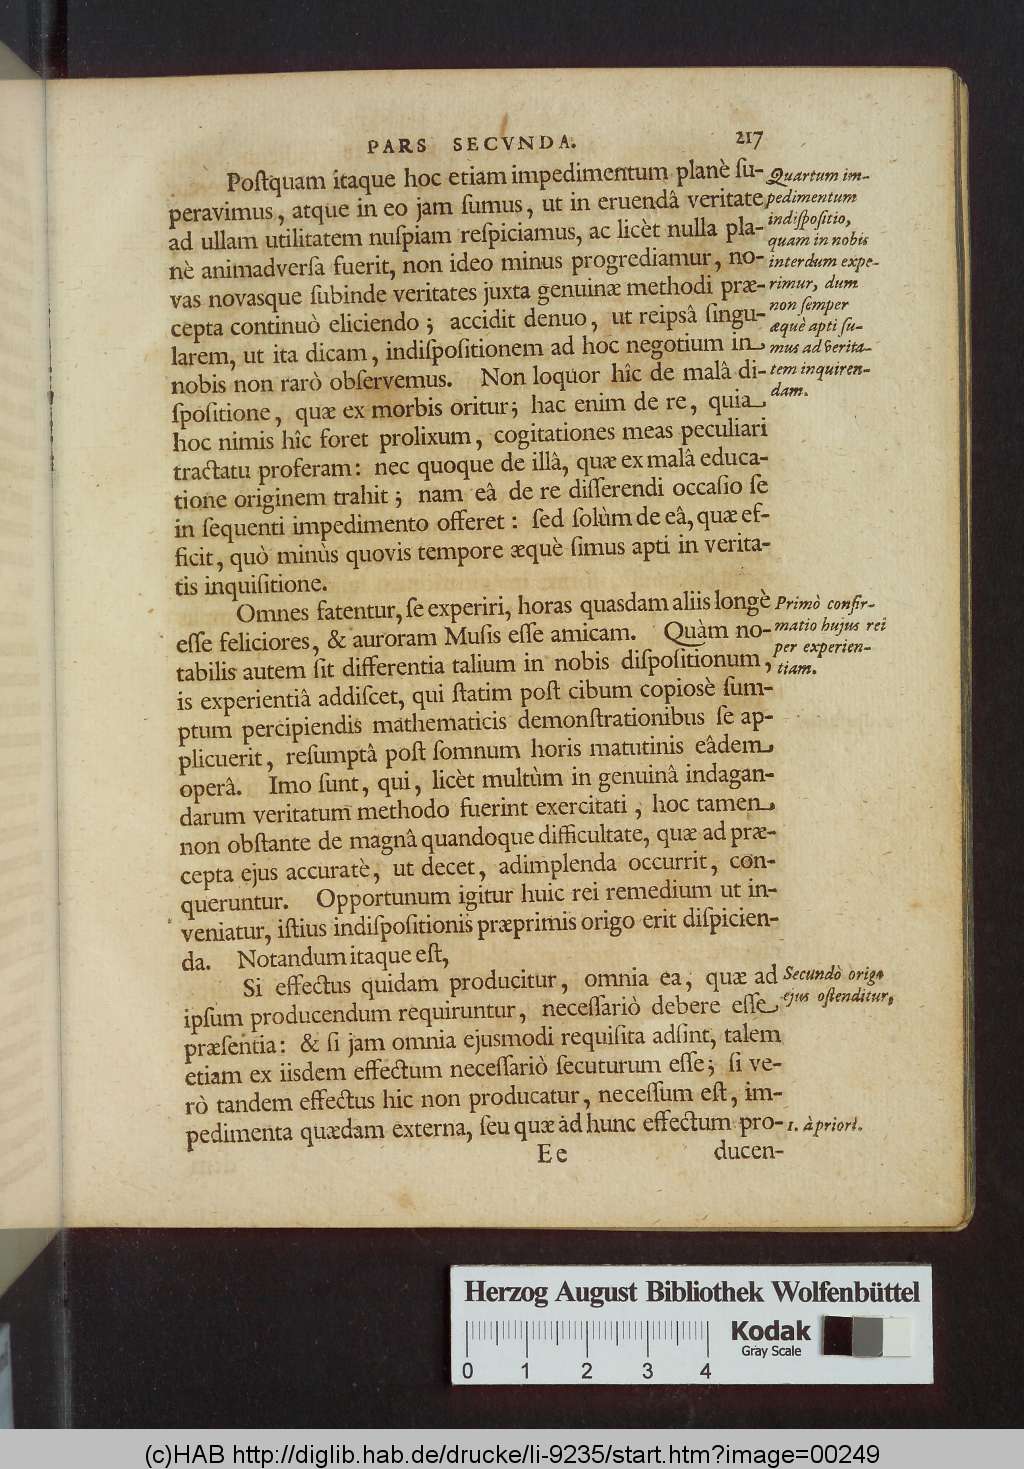 PARS SECVNDA. 217
Poſtquam itaque hoc etiam impedimentum planè ſu-
peravimus, atque in eo jam ſumus, ut in eruendâ veritate
ad ullam utilitatem nuſpiam reſpiciamus, ac licèt nulla pla-
nè animadverſa fuerit, non ideo minus progrediamur, no-
vas novasque ſubinde veritates juxta genuinæ methodi præ-
cepta continuò eliciendo; accidit denuo, ut reipsâ ſingu-
larem, ut ita dicam, indiſpoſitionem ad hoc negotium in
nobis non rarò obſervemus. Non loquor hîc de malâ di-
ſpoſitione, quæ ex morbis oritur; hac enim de re, quia
hoc nimis hîc foret prolixum, cogitationes meas peculiari
tractatu proferam: nec quoque de illâ, quæ ex malâ educa-
tione originem trahit; nam eâ de re diſſerendi occaſio ſe
in ſequenti impedimento offeret: ſed ſolùm de eâ, quæ ef-
ficit, quò minùs quovis tempore æquè ſimus apti in verita-
tis inquiſitione.
Quartum im-
pedimentum
indiſpoſitio,
quam in nobis
interdum expe-
rimur, dum
non ſemper
æquè apti ſu-
mus ad verita-
tem inquiren-
dam.
Omnes fatentur, ſe experiri, horas quasdam aliis longè
eſſe feliciores, & auroram Muſis eſſe amicam. Quàm no-
tabilis autem ſit differentia talium in nobis diſpoſitionum,
is experientiâ addiſcet, qui ſtatim poſt cibum copiosè ſum-
ptum percipiendis mathematicis demonſtrationibus ſe ap-
plicuerit, reſumptâ poſt ſomnum horis matutinis eâdem
operâ. Imo ſunt, qui, licèt multùm in genuinâ indagan-
darum veritatum methodo fuerint exercitati, hoc tamen
non obſtante de magnâ quandoque difficultate, quæ ad præ-
cepta ejus accuratè, ut decet, adimplenda occurrit, con-
queruntur. Opportunum igitur huic rei remedium ut in-
veniatur, iſtius indiſpoſitionis præprimis origo erit diſpicien-
da. Notandum itaque eſt,
Primò confir-
matio hujus rei
per experien-
tiam.
Si effectus quidam producitur, omnia ea, quæ ad
ipſum producendum requiruntur, neceſſariò debere eſſe
præſentia: & ſi jam omnia ejusmodi requiſita adſint, talem
etiam ex iisdem effectum neceſſariò ſecuturum eſſe; ſi ve-
rò tandem effectus hic non producatur, neceſſum eſt, im-
pedimenta quædam externa, ſeu quæ ad hunc effectum pro-
Secundò origo
ejus oſtenditur,
1. à priori.
Ee ducen-
Herzog August Bibliothek Wolfenbüttel
Kodak
Gray Scale
0 1 2 3 4
(c)HAB http://diglib.hab.de/drucke/li-9235/start.htm?image=00249